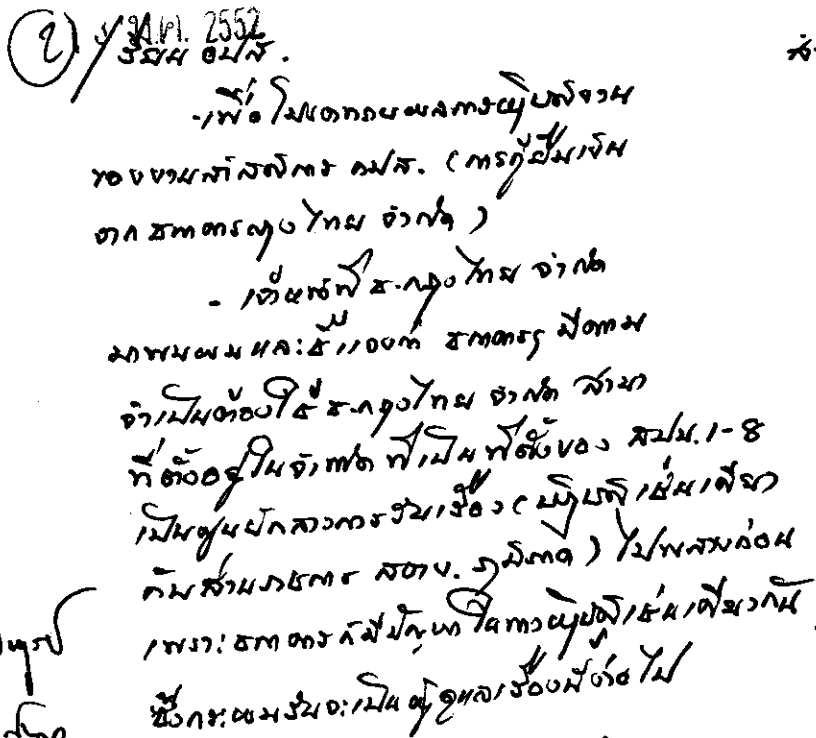 (2) ม.ค. 2552
เรียน อปส.
- เพื่อโปรดทราบผลการปฏิบัติงาน
ของงานสวัสดิการ กปส. (การกู้ยืมเงิน
จากธนาคารกรุงไทย จำกัด)
- เจ้าหน้าที่ ธ.กรุงไทย จำกัด
มาพบผมและชี้แจงว่า ธนาคารฯ มีความ
จำเป็นต้องใช้ ธ.กรุงไทย จำกัด สาขา
ที่ตั้งอยู่ในจังหวัด ที่เป็นที่ตั้งของ สปข.1-8
เป็นศูนย์กลางการรับเรื่อง (ปฏิบัติเช่นเดียว
กับส่วนราชการ ภูมิภาค) ไปพลางก่อน
เพราะธนาคารก็มีปัญหาในทางปฏิบัติเช่นเดียวกัน
ซึ่งกระผมรับจะเป็นผู้ดูแลเรื่องนี้ต่อไป